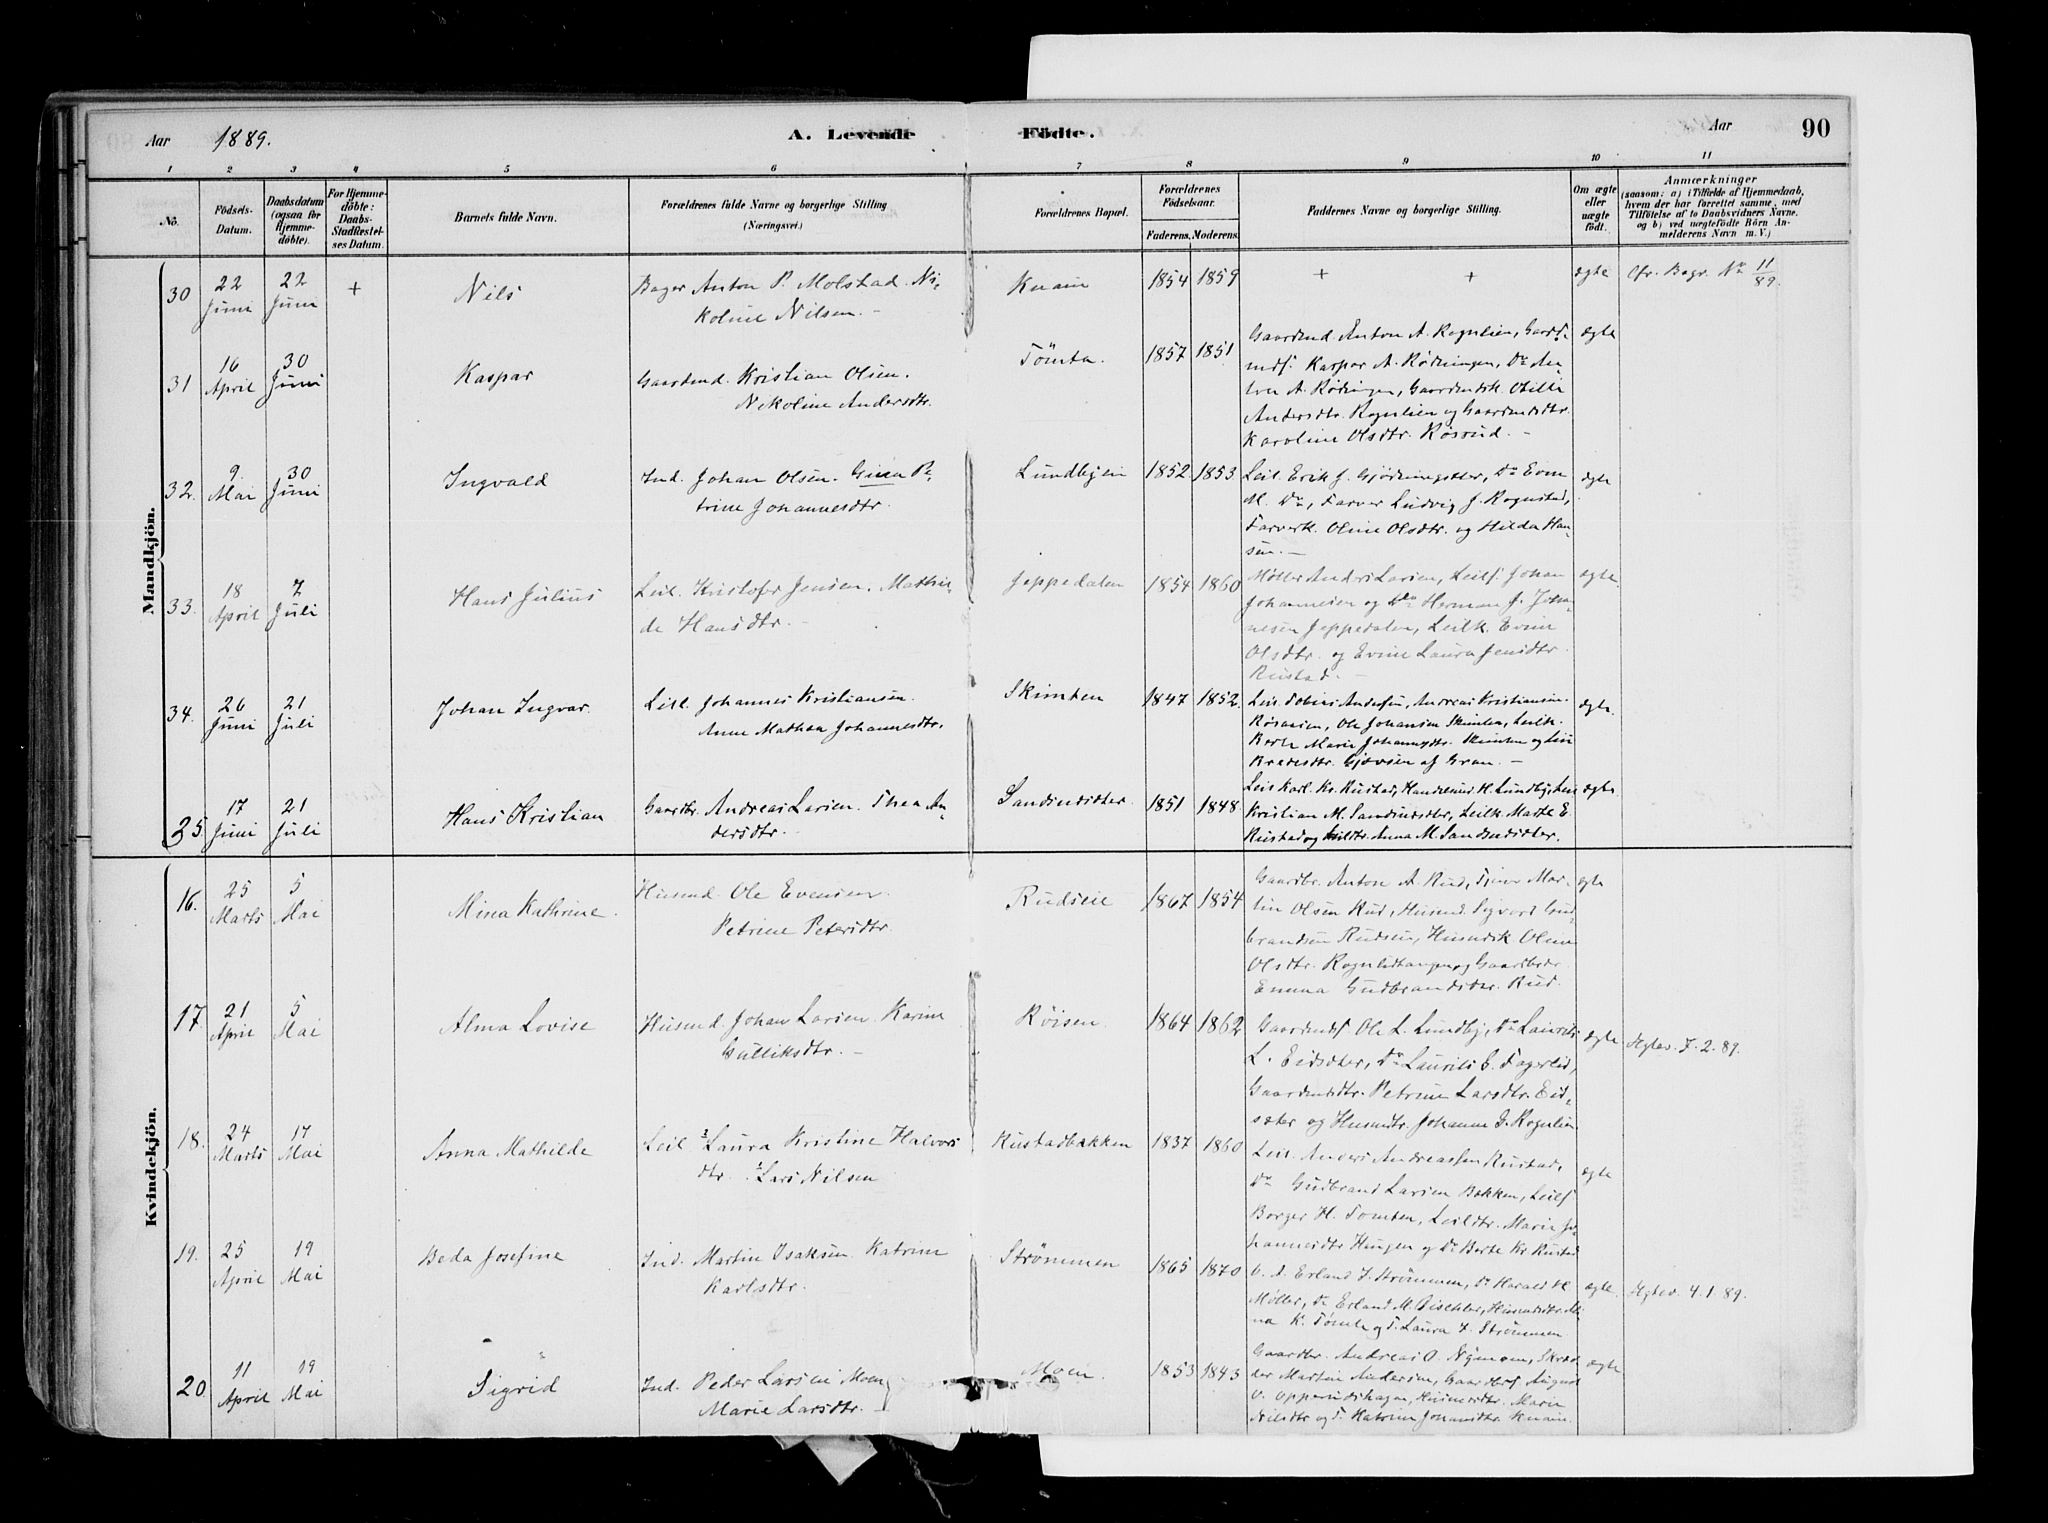 Aar 1889. A. Levende Födte. Aar 90
1 2 3 4 5 6 7 8 9 10 11
No. Födsels-Datum. Daabsdatum (ogsaa for Hjemme-döbte). For Hjemme-döbte: Daabs-Stadfæstel-ses Datum. Barnets fulde Navn. Forældrenes fulde Navne og borgerlige Stilling (Næringsvei.) Forældrenes Bopæl. Forældrenes Födselsaar. Faderens. Moderens. Faddernes Navne og borgerlige Stilling. Om ægte eller uægte födt. Anmærkninger (saasom: a) i Tilfælde af Hjemmedaab, hvem der har forrettet samme, med Tilföielse af to Daabsvidners Navne, og b) ved uægtefödte Börn An-melderens Navn m. V.)
Mandkjön.
30 22 Juni 22 Juni + Nils Bager Anton P. Molstad. Ni-
koline Nilsen. - Knain 1854 1859 + + ægte Cfr. Begr. No 11/89.
31 16 April 30 Juni Kaspar Gaardmd. Kristian Olsen.
Nikoline Andersdtr. Tömta. 1857 1851 Gaardmd. Anton A. Rognlien, Gaard-
mdf. Kaspar A. Rödningen, Do An-
ton A. Rödningen, Gaardmdsk. Otilie
Andersdtr. Rognlien og Gaardmdsdtr.
Karoline Olsdtr. Rösrud. - ægte
32. 9 Mai 30 Juni Ingvald Ind. Johan Olsen. Gina Pe-
trine Johannesdtr. Lundbyeie 1852 1853 Leil. Erik J. Gjödningsæter, Do Even
M. Do, Farver Ludvig J. Rognstad,
Farverk. Oline Olsdtr. og Hilda Han-
sen. - ægte
33. 18 April 7 Juli Hans Julius Leil. Kristofer Jensen. Mathil-
de Hansdtr. - Jeppedalen 1854 1860 Møller Anders Larsen, Leilf. Johan
Johannesen og Do Herman J. Johan-
nesen Jeppedalen, Leilk. Eline
Olsdtr. og Evine Laura Jensdtr.
Rustad. - ægte.
34. 26 Juni 21 Juli Johan Ingvar. Leil. Johannes Kristiansen.
Anne Mathea Johannesdtr. Skimten 1847 1852. Leil. Tobias Andersen, Andreas Kristiansen
Ole Johansen Skimten, Leilk.
Berte Marie Johannesdtr. Skimten og
Bredesdtr. af Gran. - ægte.
35. 17 Juni 21 Juli Hans Kristian Gaardbr. Andreas Larsen. Thea An-
dersdtr. - Sandundster. 1851 1848. Leil. Karl Kr. Rustad,
Kristian M. Leilk. Marte E.
Rustad og Anna M. ægte.
Kvindekjön.
16. 25 Marts 5 Mai Mina Kathrine. Husmd. Ole Evensen.
Petrine Petersdtr. Rudseie 1867 1854 Gaardbr. Anton A. Rud, Mar-
tin Olsen Rud, Husmd. Sigvard Gud-
brandsen Rudseie, Husmdsk. Oline
Olsdtr. og Gaardbrdtr.
Emma Gudbrandsdtr. Rud. ægte
17. 21 April 5 Mai Alma Lovise Husmd. Johan Larsen. Karine
Gulliksdtr. - Röisen. 1864 1862 Gaardmdsf. Ole L. Lundby, Do Laurits
L. Eidsæter, Do Laurits E. Fagerlid,
Gaardmdsdtr. Petrine Larsdtr. Eid-
sæter og Husmdtr. Johanne J. Rognlien. ægte Ægtev. 7. 2. 89.
18. 24 Marts 17 Mai Anna Mathilde Leil 2Laura Kristine Halvors
dtr. 1Lars Nilsen Rustadbakken 1837 1860 Leil. Anders Andreassen Rustad,
Do Gudbrand Larsen Bakken, Leilf
Borger H. Tomten, Leildtr. Marie Jo-
hannesdtr Haugen og Do Berte Kr. Rustad ægte
19. 25 April 19 Mai Beda Josefine Ind. Martin Isaksen. Katrine
Karlsdtr. Strömmen 1865 1870 Erland J. Strömmen, Do Harald M.
Møller, Do Erland M.
K. Tömte og P. Laura Strömmen ægte. Ægtev. 4. 1. 89.
20 11 April 19 Mai Sigrid Ind. Peder Larsen Moen
Marie Larsdtr. - Moen. 1853 1843 Gaardbr. Andreas O. Skræd-
der Martin Andersen, August
O. Opperudshagen, Marie
Nilsdtr og P. Katrine Johansdtr. Knain. ægte